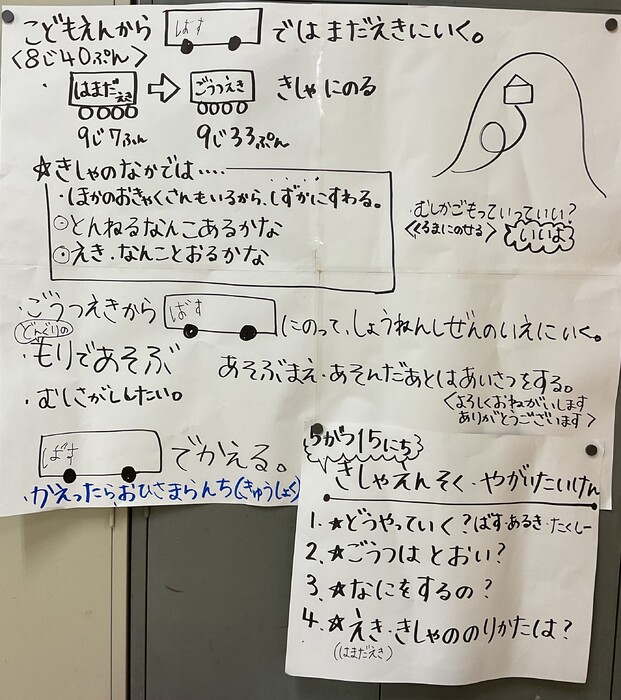 こどもえんから ばす ではまだえきにいく。
<8じ40ぷん>
・はまだえき ⇨ ごうつえき きしゃにのる
9じ7ふん 9じ33ぷん
☆きしゃのなかでは‥‥
・ほかのおきゃくさんもいるから、しずかにすわる。
⊙とんねるなんこあるかな
⊙えき・なんことおるかな
・むしかごもっていっていい?
<くるまにのせる> いいよ
・ごうつえきから ばす にのって、しょうねんしぜんのいえにいく。
どんぐりの
・もりであそぶ
あそぶまえ・あそんだあとはあいさつをする。
・むしさがししたい。
<よろしくおねがいします
ありがとうございます>
ばす でかえる。
・かえったらおひさまらんち(きゅうしょく)
5がつ15にち
きしゃえんそく・やがいたいけん
1.☆どうやっていく?ばす・あるき・たくしー
2.☆ごうつはとおい?
3.☆なにをするの?
4.☆えき・きしゃののりかたは?
(はまだえき)